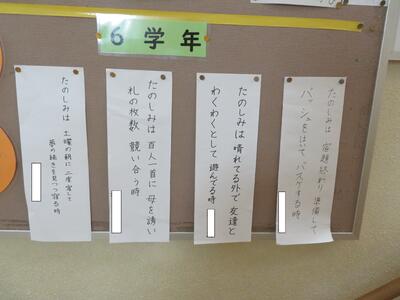 6学年
たのしみは 宿題終わり 準備して
バッシュをはいて バスケする時
たのしみは 晴れてる外で 友達と
わくわくとして 遊んでる時
たのしみは 百人一首に 母を誘い
札の枚数 競い合う時
たのしみは 土曜の朝に 二度寝して
夢の続きを見つつ寝る時